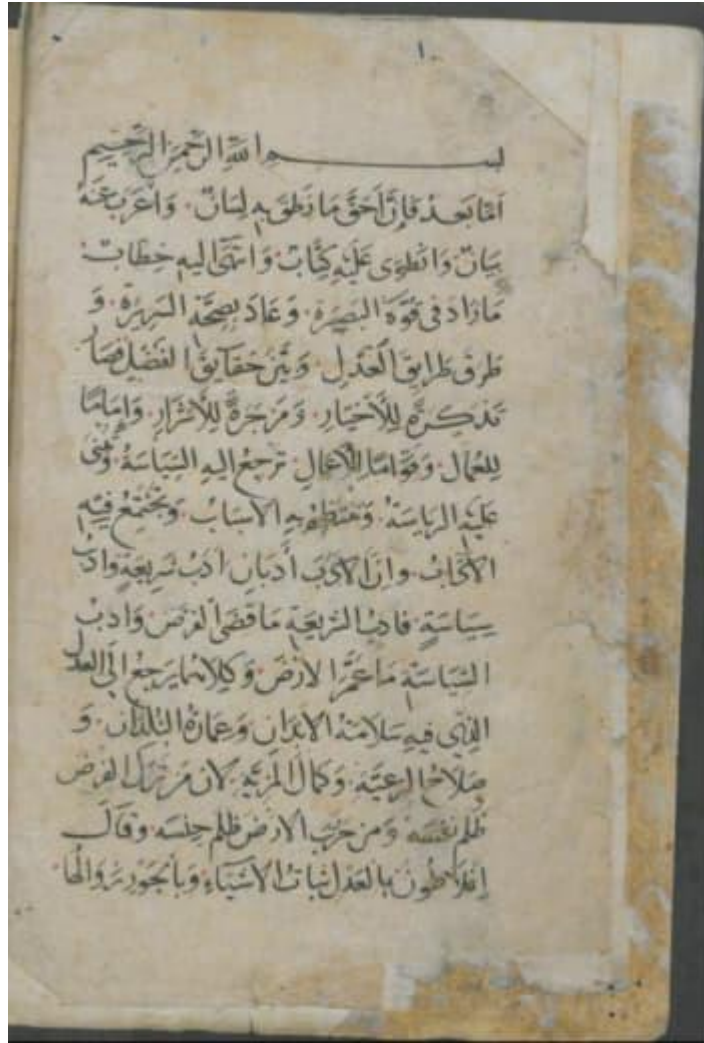 ١٠
بسم الله الرحمن الرحيم
اما بعد فان احق ما نطق به لسان . واعرب عنه
بيان وانطوى عليه كتاب وانتهى اليه خطاب .
ما زاد في قوة البصيرة . وعاد بصحة السريرة . و
طرق طرايق العدل . وبين حقايق الفضل فصار
تذكرة للأخيار . ومزجرة للأشرار . واماما
للعمال . وقواما للأعمال ترجع اليه السياسة وتبنى
عليه الرياسة وينتظم به الاسباب . ويجتمع فيه
الآداب . وان الادب أدبان ادب شريعة وادب
سياسة . فادب الشريعة ما قضى الفرض وادب
السياسة ما عمر الارض . وكلاهما يرجع الى العدل
الذي فيه سلامة الابدان وعمارة البلدان . و
صلاح الرعية . وكمال المزية لان من ترك الفرض
ظلم نفسه ومن خرب الارض ظلم جنسه وقال
افلاطون بالعدل ثبات الاشياء وبالجور زوالها .